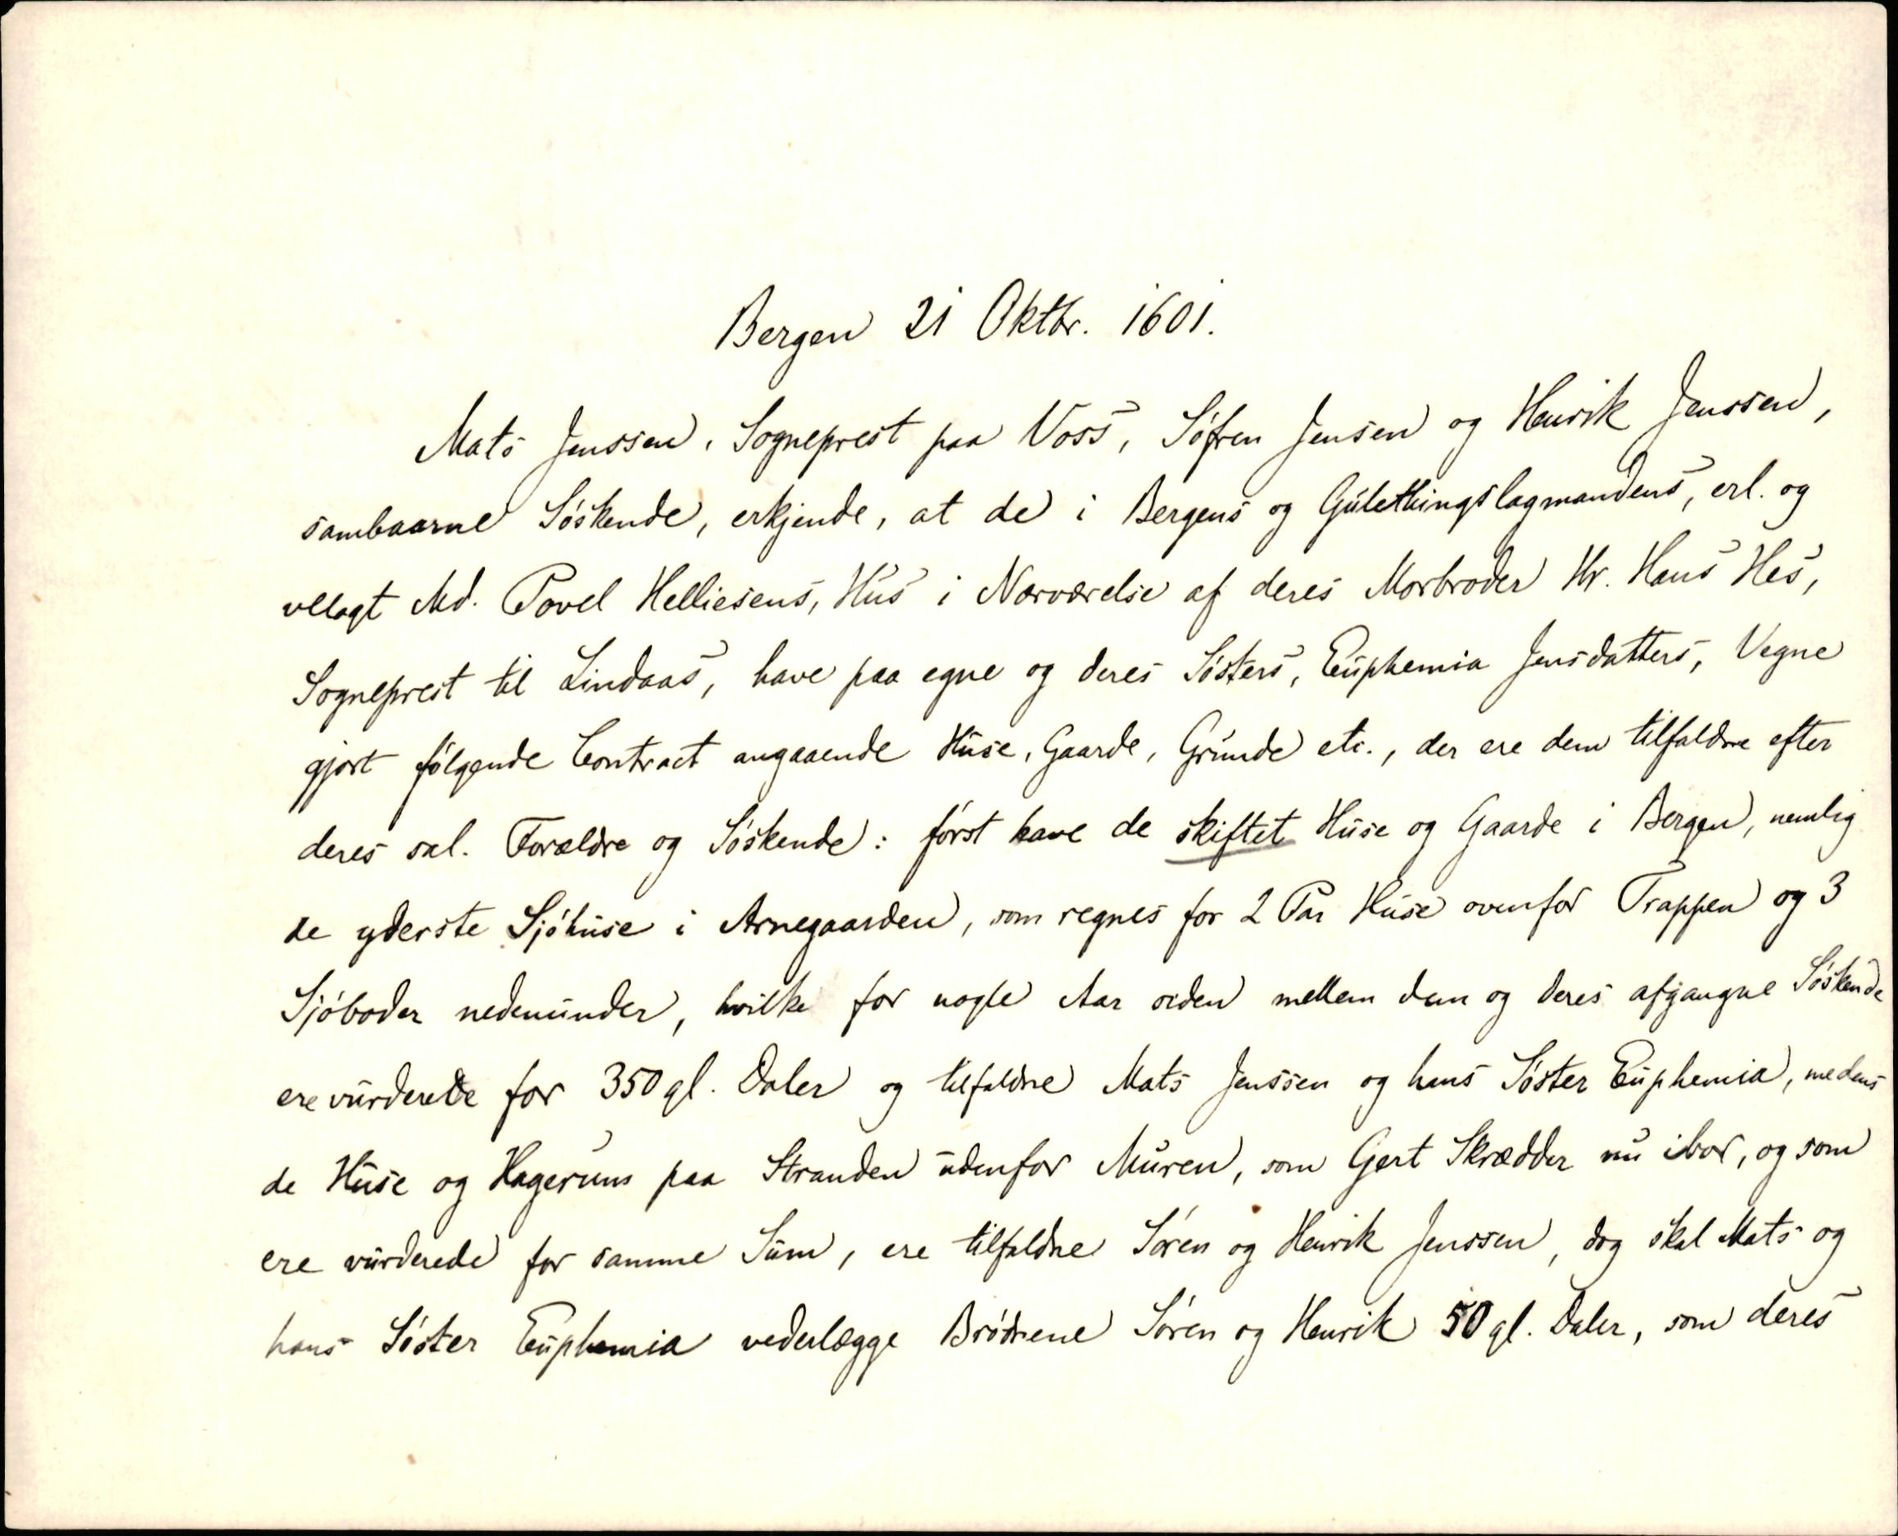 Bergen 21 Oktbr. 1601.
Mats Jenssen, Sogneprest paa Voss, Söfren Jensen og Henrik Jenssen,
sambaarne Söskende, erkjende, at de i Bergens og Gulethingslagmandens, erl. og
vllagt Md. Povel Helliesens, Hus i Nærværelse af deres Morbroder Hr. Hans Hes,
Sogneprest til Lindaas, have paa egne og deres Sösters, Euphemia Jensdatters, Vegne
gjort fölgende Contract angaaende Huse, Gaarde, Grunde etc., der ere dem tilfaldne efter
deres sal. Forældre og Söskende: först have de skiftet Huse og Gaarde i Bergen, nemlig
de yderste Sjöhuse i Arnegaarden, som regnes for 2 Par Huse ovenfor Trappen og 3
Sjöboder nedenunder, hvilke for nogle Aar siden mellem dem og deres afgangne Söskende
ere vurderede for 350 gl. Daler og tilfaldne Mats Jenssen og hans Söster Euphemia, medens
de Huse og Hagerum paa Stranden udenfor Muren, som Gert Skrædder nu ibor, og som
ere vurderede for samme Sum, ere tilfaldne Sören og Henrik Jenssen, dog skal Mats og
hans Söster Euphemia vederlægge Brödrene Sören og Henrik 50 gl. Daler, som deres